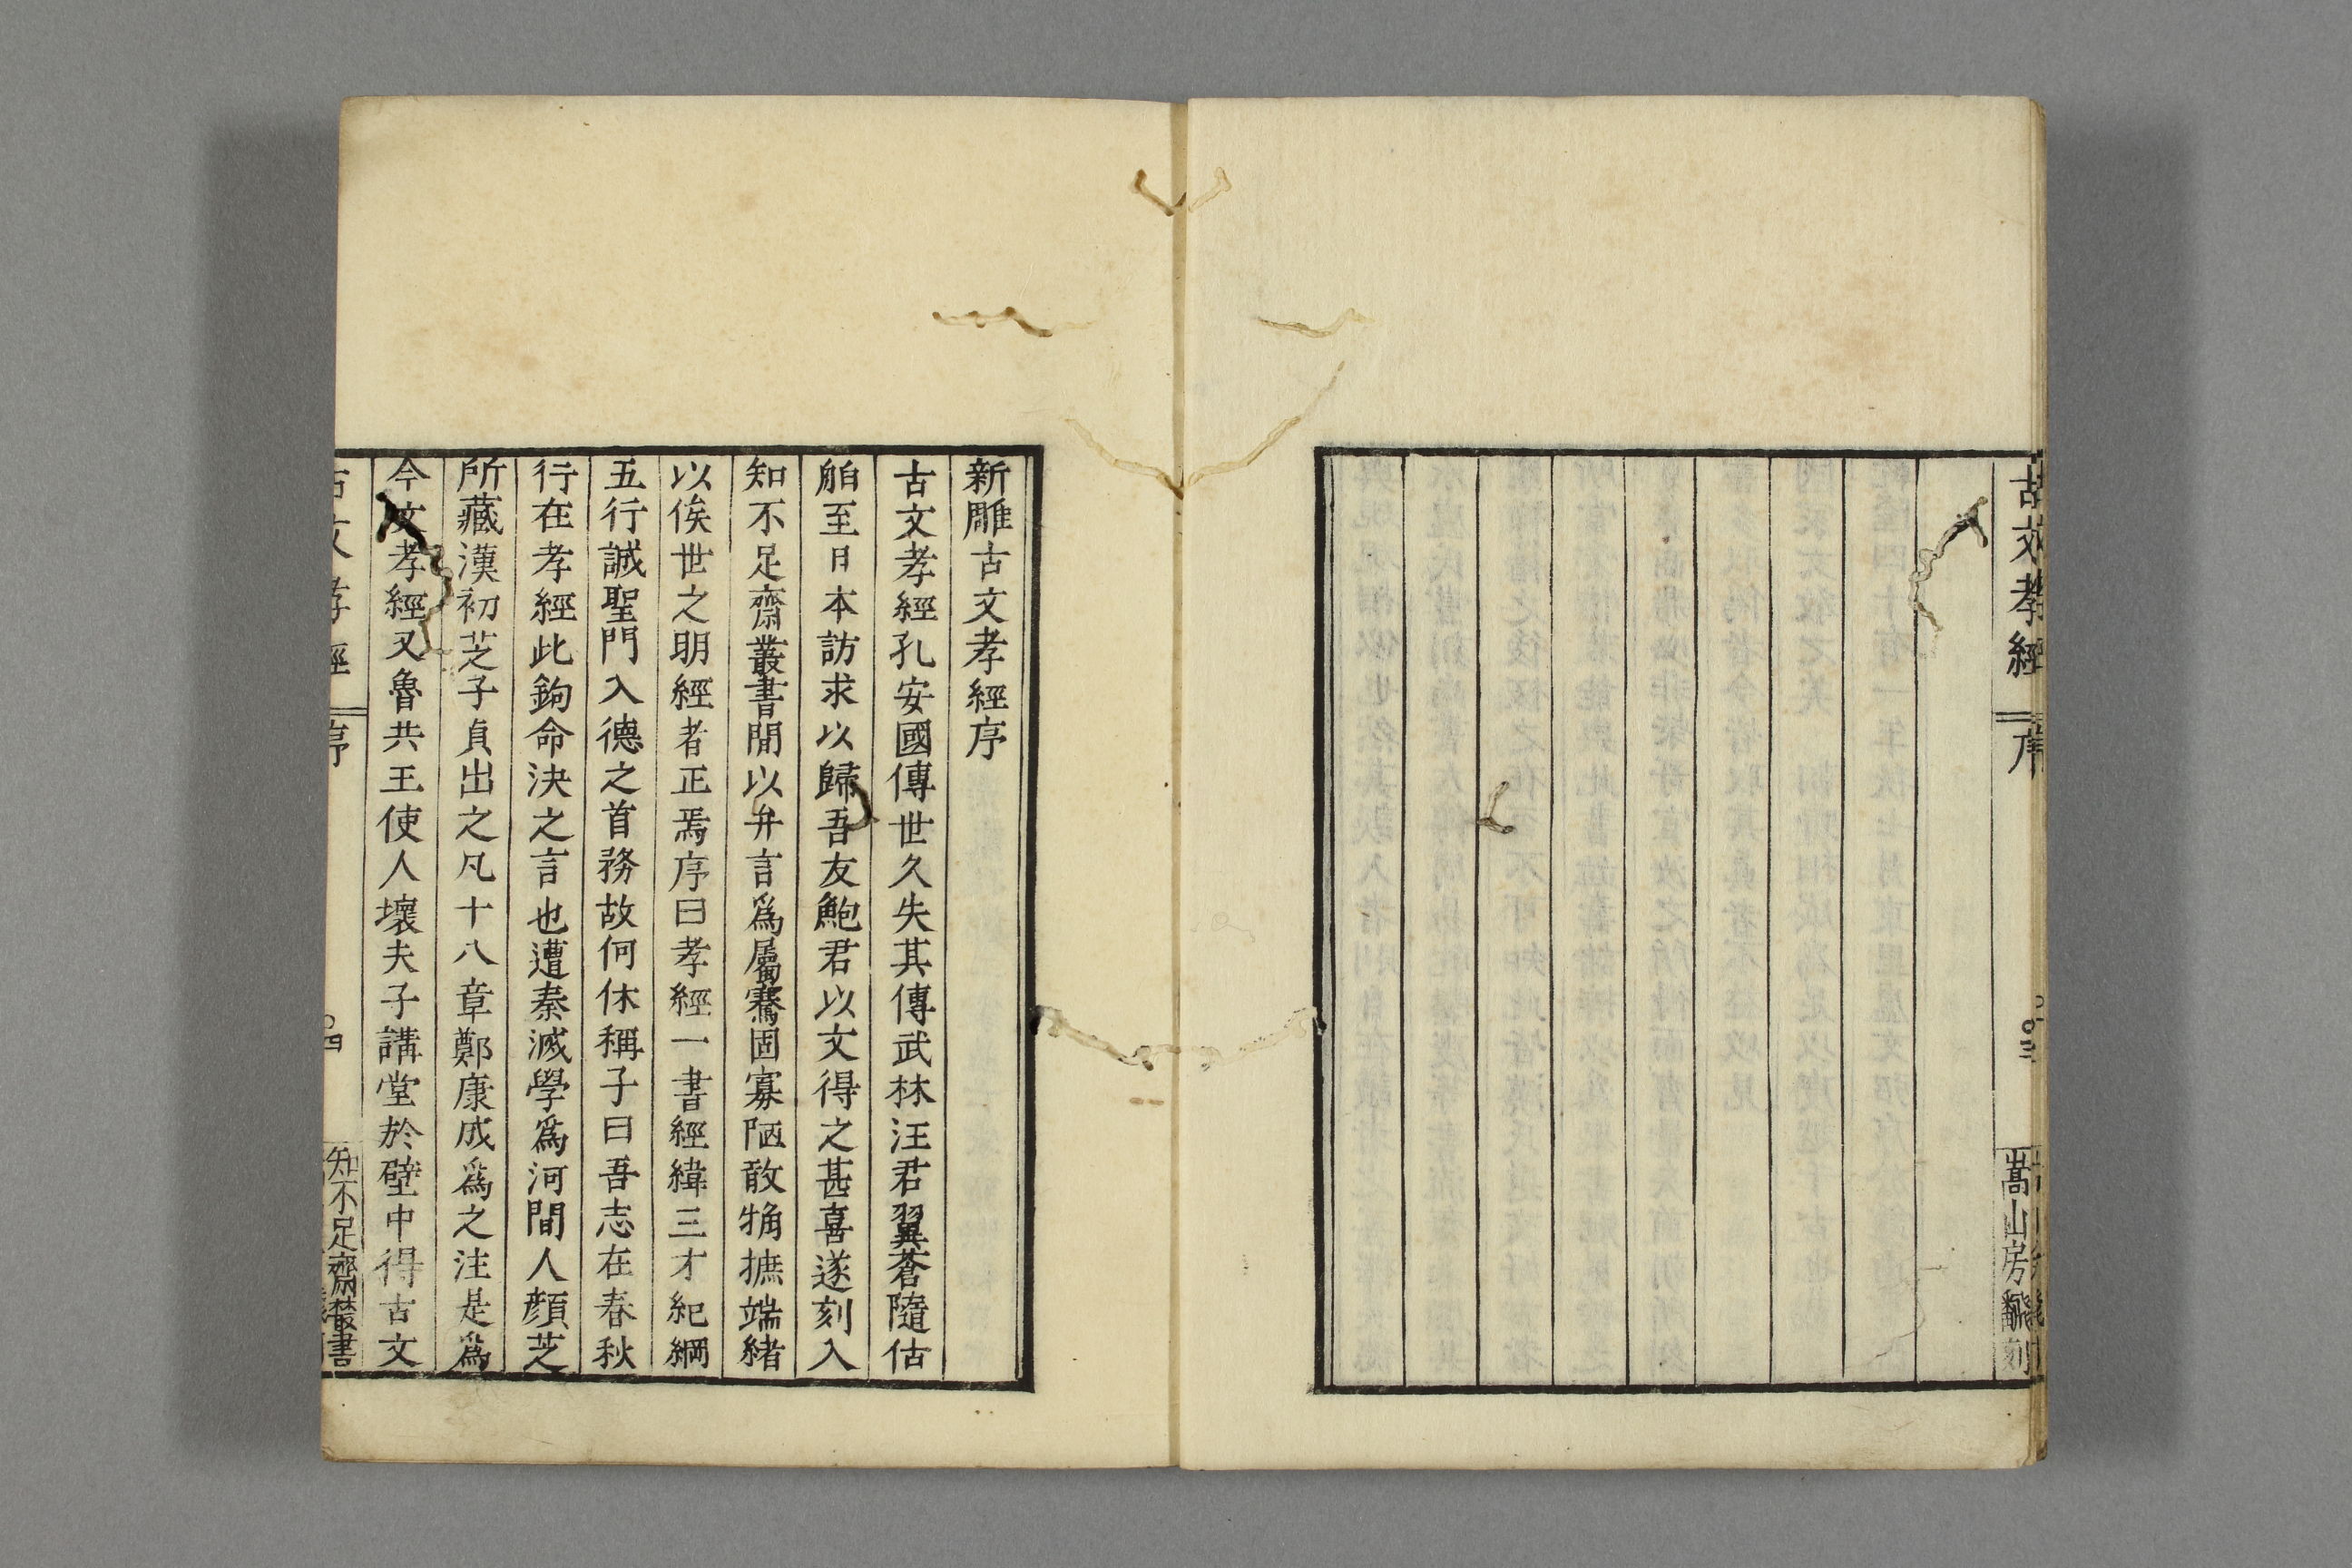 古文孝經
序
嵩山房翻刻
新雕古文孝經序
古文孝經孔安國傳世久失其傳武林汪君翼蒼隨估
舶至日本訪求以歸吾友鮑君以文得之甚喜遂刻入
知不足齋叢書閒以弁言爲屬騫固寡陋敢觕摭端緒
以俟世之明經者正焉序曰孝經一書經緯三才紀綱
五行誠聖門入德之首務故何休稱子曰吾志在春秋
行在孝經此鉤命決之言也遭秦滅學爲河間人顏芝
所藏漢初芝子貞出之凡十八章鄭康成爲之注是爲
今文孝經又魯共王使人壞夫子講堂於壁中得古文
古文孝經
序
知不足齋叢書